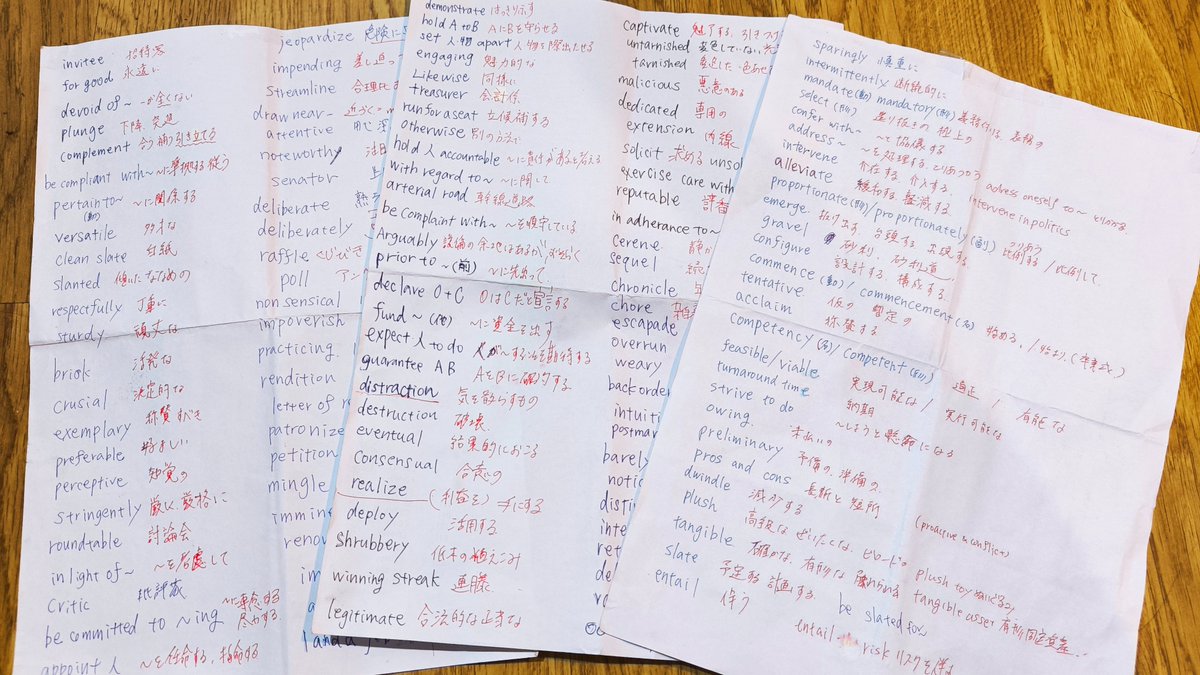 invitee 招待客
for good 永遠に
devoid of~ ~が全くない
plunge 下降、突進
complement 合う 補う 引き立てる
be compliant with~ ~に準拠する 従う
pertain to~ (動) ~に関係する
versatile 多才な
clean slate 白紙
slanted 傾いた ななめの
respectfully 丁重に
sturdy 頑丈な
brisk 活発な
crusial 決定的な
exemplary 称賛すべき
preferable 好ましい
perceptive 知覚の
stringently 厳しく 厳格に
roundtable 討論会
in light of~ ~を考慮して
critic 批評家
be committed to ~ing ~に専念する 尽力する
appoint 人 ~を任命する、指命する
jeopardize 危険に
impending 差し迫っ
streamline 合理化
draw near 近づく
attentive 用心深
noteworthy 注目
senator 上
deliberate
deliberately
raffle くじびき
poll アン
nonsensical
impoverish
practicing
rendition
letter of r
patronize
petition
mingle
immin
renov
demonstrate はっきり示す
hold A to B AにBを守らせる
set 人・物 apart 人・物を際出たせる
engaging 魅力的な
Likewise 同様に
treasurer 会計係
run for a seat 立候補する
otherwise 別の方法で
hold 人 accountable ~に責任があると考える
with regard to~ ~に関して
arterial road 幹線道路
be complaint with~ ~を順守している
Arguably 議論の余地はあるが おそらく
prior to ~ (前) ~に先立って
declave O+C OはCだと宣言する
fund ~ (他) ~に資金を出す
expect 人 to do 人が~すると期待する
guarantee AB AをBに確約する
distraction 気を散らすもの
destruction 破壊
eventual 結果的におこる
consensual 合意の
realize (利益を)手にする
deploy 活用する
Shrubbery 低木の植えこみ
winning streak 連勝
legitimate 合法的な 正当な
captivate 魅了する、引きつけ
untarnished 変色していない
tarnished 変色した 色あせ
malicious 悪意のある
dedicated 専用の
extension 内線
solicit 求める unsol
exercise care with
reputable 評番
in adherance to~
Cerene 静か
sequel 続
chronicle
chore 雑
escapade
overrun
weary
backorder
intuiti
postmar
barely
notic
disti
inte
ret
de
sparingly 慎重に
intermittently 断続的に
mandate(動) mandatory(形) 義務づける、義務の
select (形) 選り抜きの 極上の
confer with~ ~と協議する
address~ ~を処理する、とりあつかう adress oneself to~
intervene 介在する 介入する intervene in politics
alleviate 緩和する 軽減する
proportionate(形)/proportionately(副) つりあう 比例する / 比例して
emerge 抜け出す、台頭する、出現する
gravel 砂利、砂利道
configure 設計する、構成する
commence (動) / commencement (名) 始める / 始まり、(卒業式)
tentative 仮の 暫定の
acclaim 称賛する
competency (名) / competent (形) 適正 / 有能な
feasible/viable 実現可能な / 実行可能な
turnaround time 納期
strive to do ~しようと懸命になる
owing 未払いの
preliminary 予備の、準備の
pros and cons 長所と短所 (proactive & conflict)
dwindle 減少する
plush 高級な ぜいたくな、ビロードの plush toy ぬいぐるみ
tangible 確かな、有形な 触れられる tangible asset 有形固定資産
slate 予定する 計画する be slated for~
entail 伴う entail risk リスクを伴う